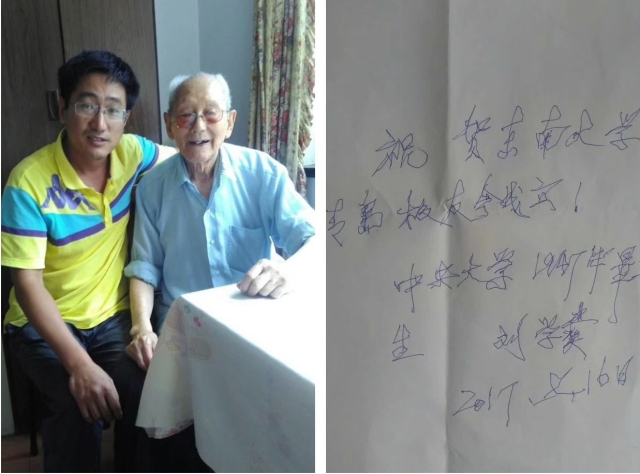 祝贺东南大学
青岛校友会成立！
中央大学1945年毕
生 刘学
2015. 16日